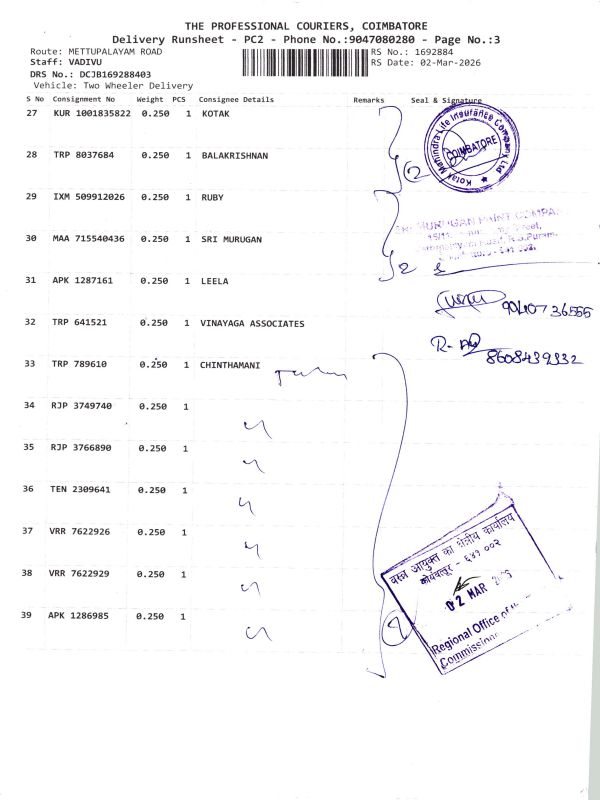 THE PROFESSIONAL COURIERS, COIMBATORE
Delivery Runsheet - PC2 - Phone No.:9047080280 - Page No.:3
Route: METTUPALAYAM ROAD
RS No.: 1692884
Staff: VADIVU
RS Date: 02-Mar-2026
DRS No.: DCJB169288403
Vehicle: Two Wheeler Delivery
S No Consignment No Weight PCS Consignee Details Remarks Seal & Signature
27 KUR 1001835822 0.250 1 KOTAK
Kotak Mahindra Life Insurance Company Ltd
COIMBATORE
28 TRP 8037684 0.250 1 BALAKRISHNAN
2
29 IXM 509912026 0.250 1 RUBY
30 MAA 715540436 0.250 1 SRI MURUGAN
SRI MURUGAN PAINT COMPA
2
31 APK 1287161 0.250 1 LEELA
32 TRP 641521 0.250 1 VINAYAGA ASSOCIATES
33 TRP 789610 0.250 1 CHINTHAMANI
8608439332
34 RJP 3749740 0.250 1
35 RJP 3766890 0.250 1
36 TEN 2309641 0.250 1
37 VRR 7622926 0.250 1
38 VRR 7622929 0.250 1
39 APK 1286985 0.250 1
वस्त्र आयुक्त का क्षेत्रीय कार्यालय
कोयंबत्तूर - ६४१ ००२
02 MAR
Regional Office of
Commissio